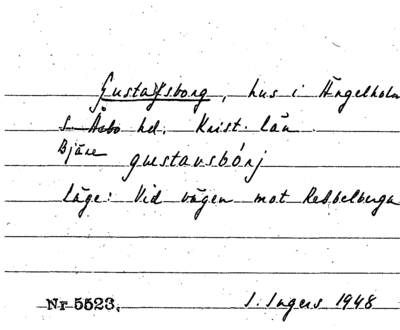 Gustafsborg, hus i Ängelholm
S. Åsbo hd. Krist. län.
Bjäre
gustavsbórj
Läge: Vid vägen mot Rebbelberga
Nr 5523. I. Ingers 1948